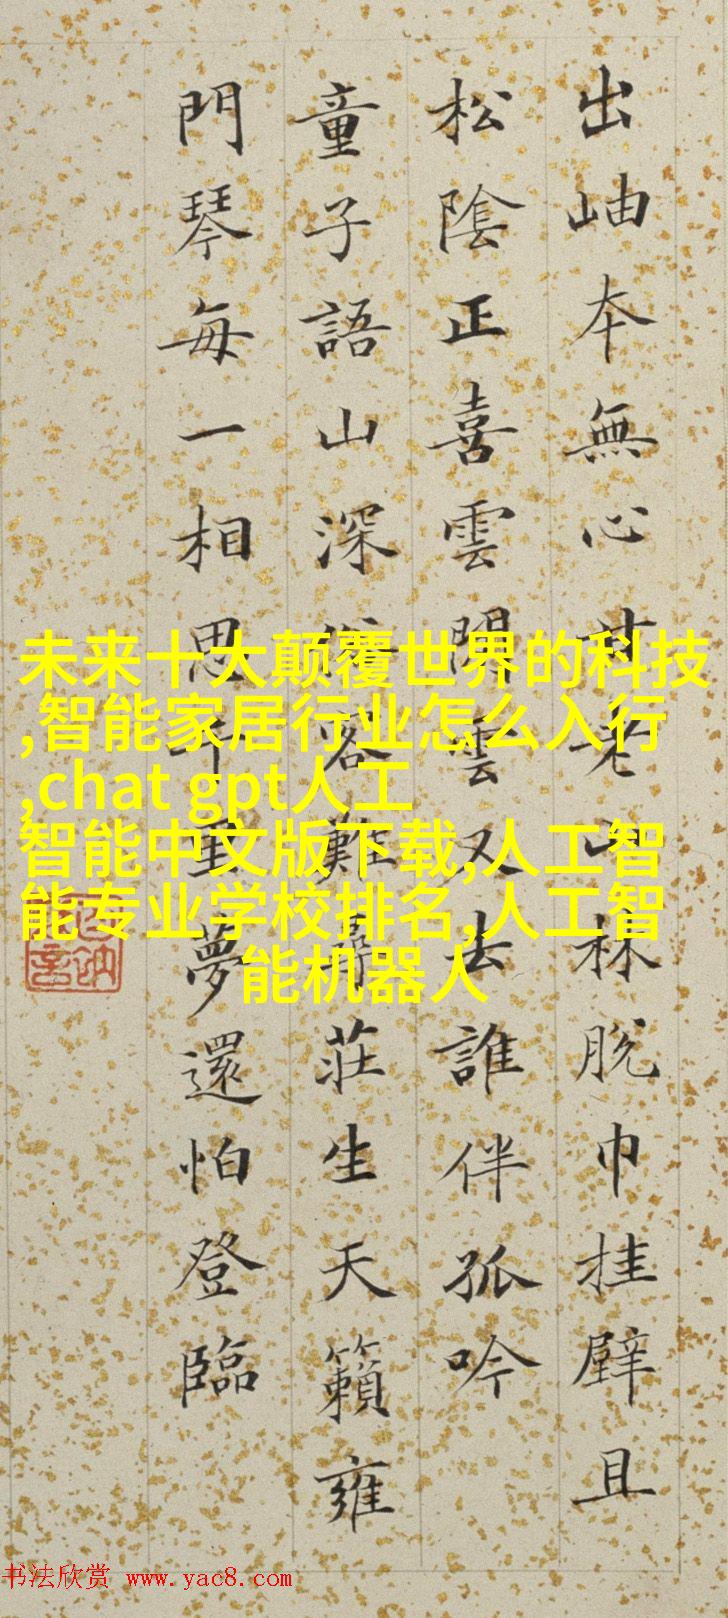 出岫本無心甘老山林脫巾挂壁且
松陰正喜雲閒雲又去誰伴孤吟
童子語山深俗客難尋莊生天籟雍
門琴每一相思千里夢還怕登臨
未来十大颠覆世界的科技
,智能家居行业怎么入行
,chat gpt人工
智能中文版下载,人工智
能专业学校排名,人工智
能机器人
书法欣赏 www.yac8.com